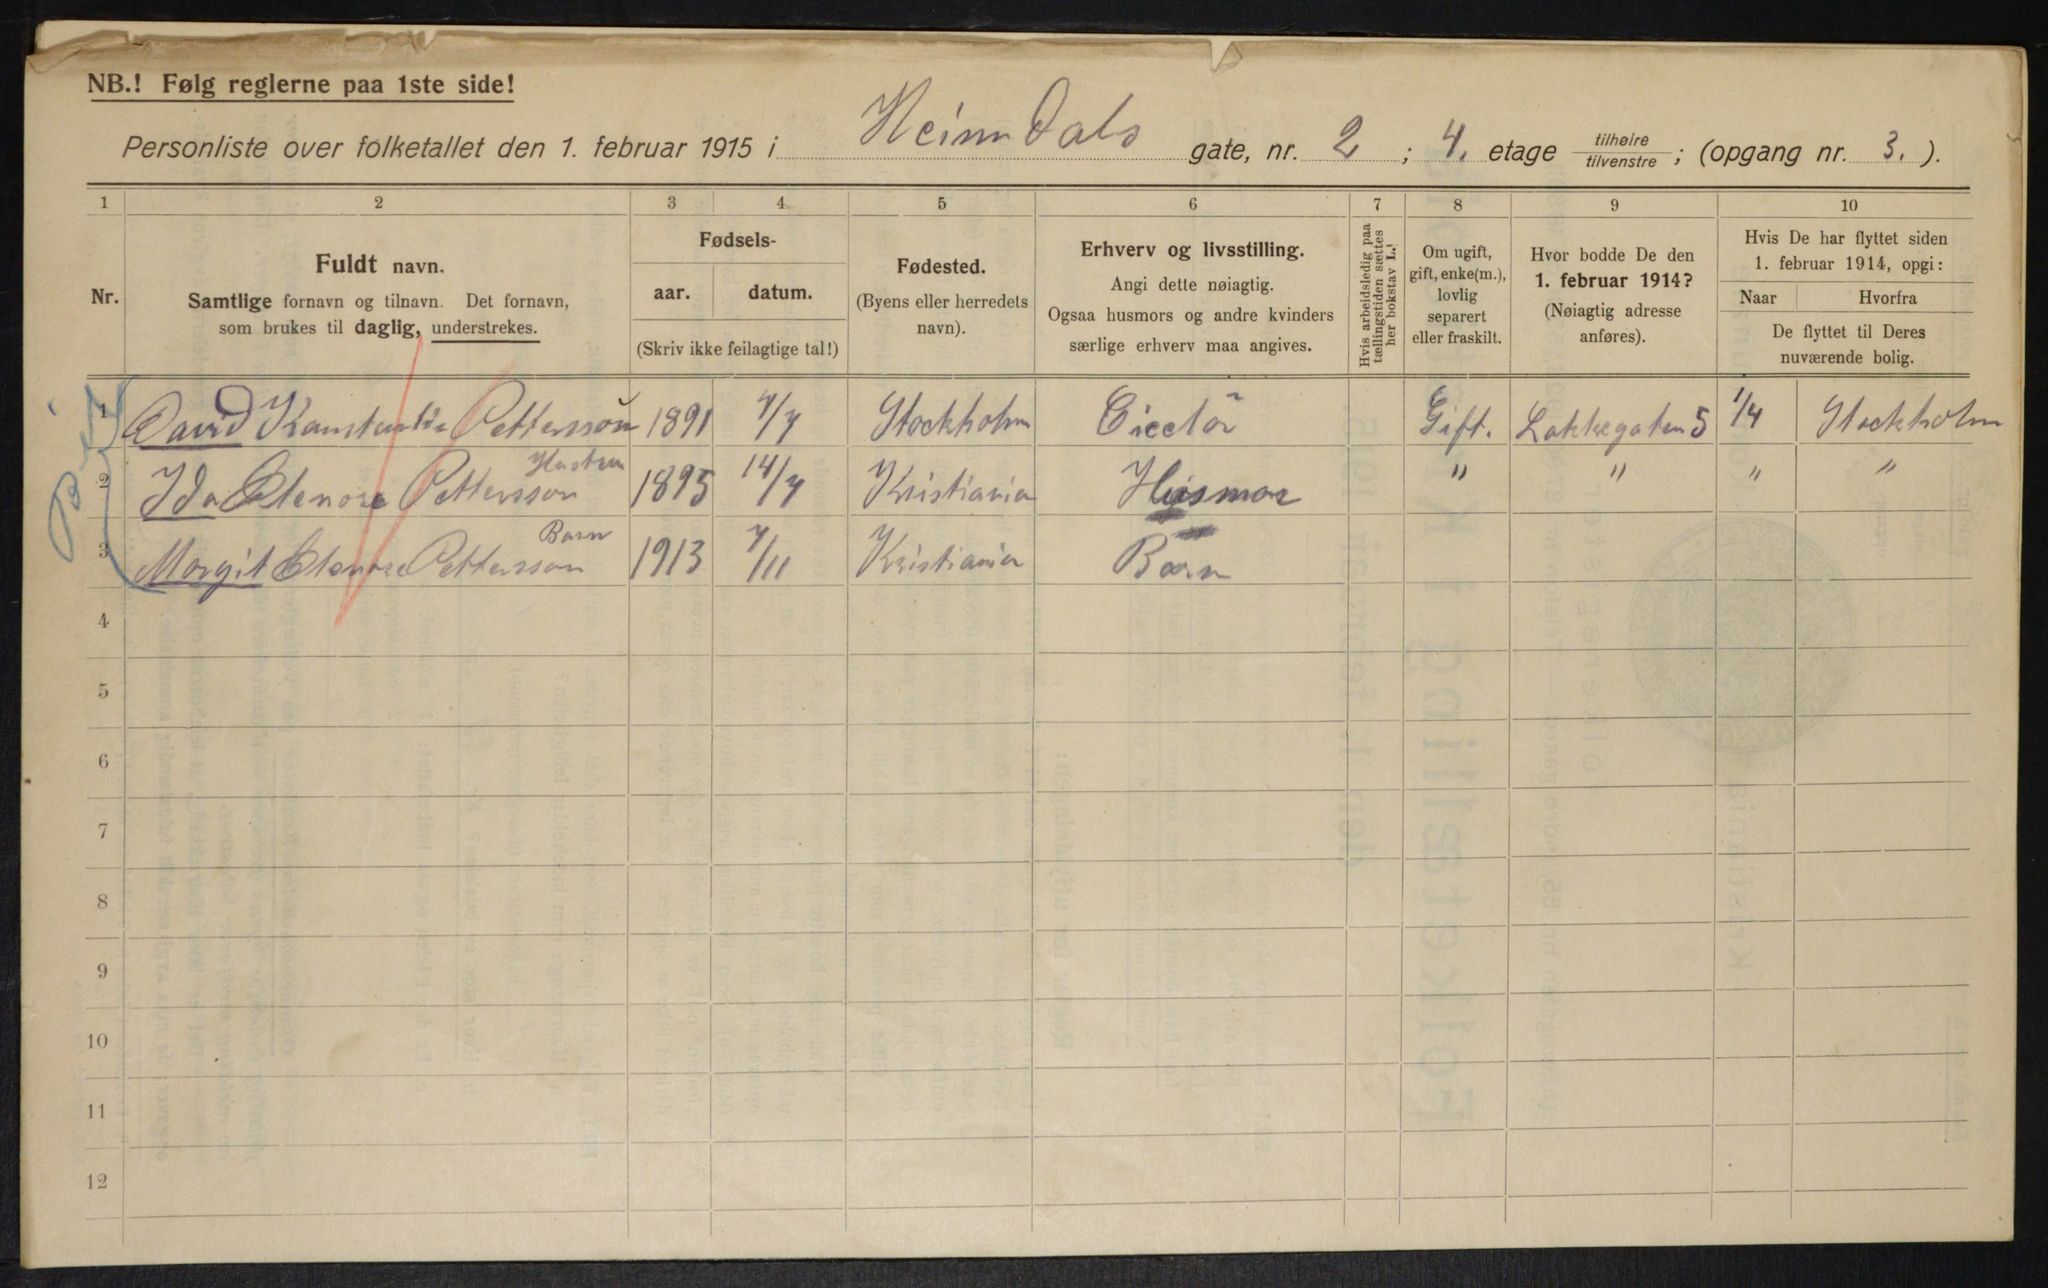 NB.! Følg reglerne paa 1ste side!
Personliste over folketallet den 1. februar 1915 i Heimdals gate, nr. 2 ; 4. etage tilhøire / tilvenstre ; (opgang nr. 3. ).
1 2 3 4 5 6 7 8 9 10
Nr.
Fuldt navn.
Samtlige fornavn og tilnavn. Det fornavn,
som brukes til daglig, understrekes.
Fødsels-
aar. datum.
(Skriv ikke feilagtige tal!)
Fødested.
(Byens eller herredets
navn).
Erhverv og livsstilling.
Angi dette nøiagtig.
Ogsaa husmors og andre kvinders
særlige erhverv maa angives.
Hvis arbeidsledig paa
tællingstiden sættes
her bokstav L.!
Om ugift,
gift, enke(m.),
lovlig
separert
eller fraskilt.
Hvor bodde De den
1. februar 1914?
(Nøiagtig adresse
anføres).
Hvis De har flyttet siden
1. februar 1914, opgi:
Naar Hvorfra
De flyttet til Deres
nuværende bolig.
1 David Pettersson 1891 7/7 Stockholm Gift. Lakkegaten 5 1/4 Stockholm
Hustru
2 Ida Elenore Pettersson 1895 14/7 Kristiania Husmor " " " "
Barn
3 Margit Elenore Pettersson 1913 7/11 Kristiania Barn
4
5
6
7
8
9
10
11
12